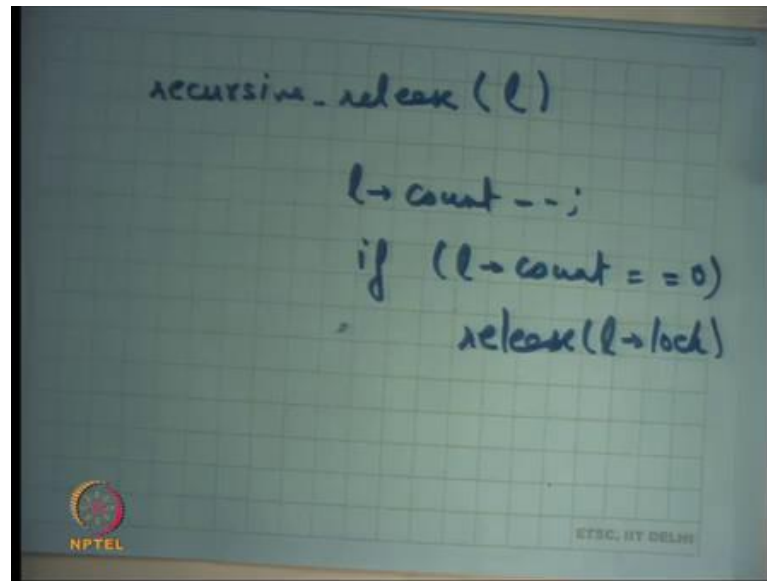 recursive_release (l)
l→ count --;
if (l→ count == 0)
release(l→lock)
NPTEL
ETSC, IIT DELHI